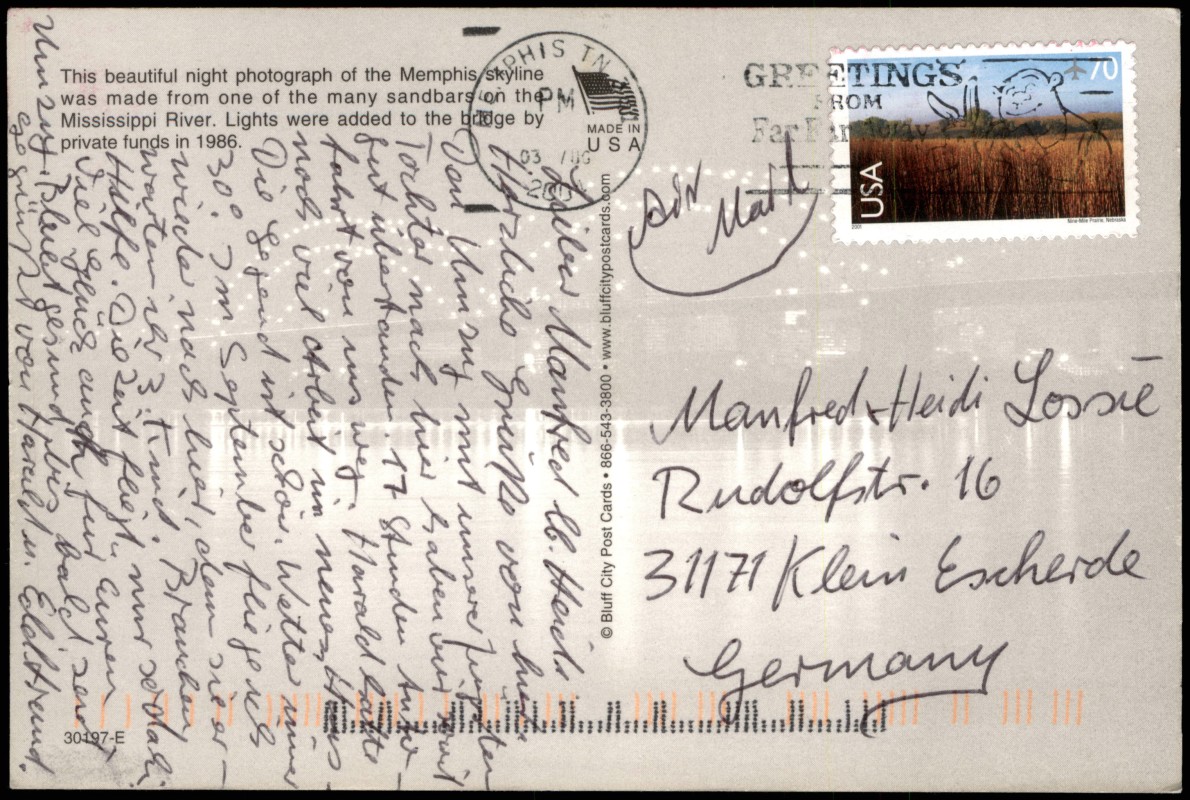 This beautiful night photograph of the Memphis skyline
was made from one of the many sandbars on the
Mississippi River. Lights were added to the bridge by
private funds in 1986.
MEMPHIS TN
PM
03 AUG
MADE IN
USA
GREETINGS
FROM
Far Far Away
70
USA
2001
Nine-Mile Prairie, Nebraska
Air Mail
Lieber Manfred lb. Heidi
Herzliche Grüße von hier.
Den Umzug mit unserer jüngsten
Tochter nach hier haben wir
gut überstanden. 17 Stunden Auto-
fahrt von uns weg. Harald hatte
noch viel Arbeit im neuen Haus.
Die Gegend ist schön. Wetter immer
30°. Im September fliege ich
wieder nach hier, denn sie er-
warten ihr 3. Kind. Brauchen
Hilfe. Die Zeit fliegt nur so
Viel Glück auch für Euren
Umzug. Bleibt gesund, bis bald seid
gegrüßt von Harald u. Edeltreud.
© Bluff City Post Cards • 866-543-3800 • www.bluffcitypostcards.com
Manfred + Heidi Lossie
Rudolfstr. 16
31171 Klein Escherde
Germany
30197-E